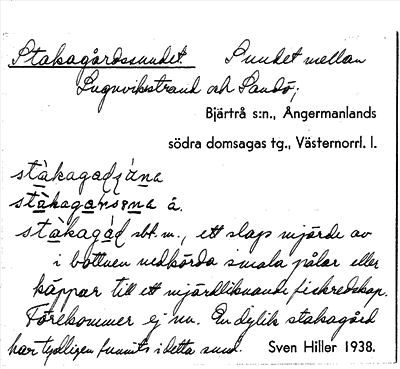 Stakagårdssundet. Sundet mellan
Lugnvikstrand och Sandö;
Bjärtrå s:n., Ångermanlands
södra domsagas tg., Västernorrl. l.
å.
stàkagåd sbt. m., ett slags mjärde av
i bottnen nedkörda smala pålar eller
käppar till ett mjärdliknande fiskredskap.
Förekommer ej nu. En dylik stakagård
har tydligen funnits i detta sund. Sven Hiller 1938.